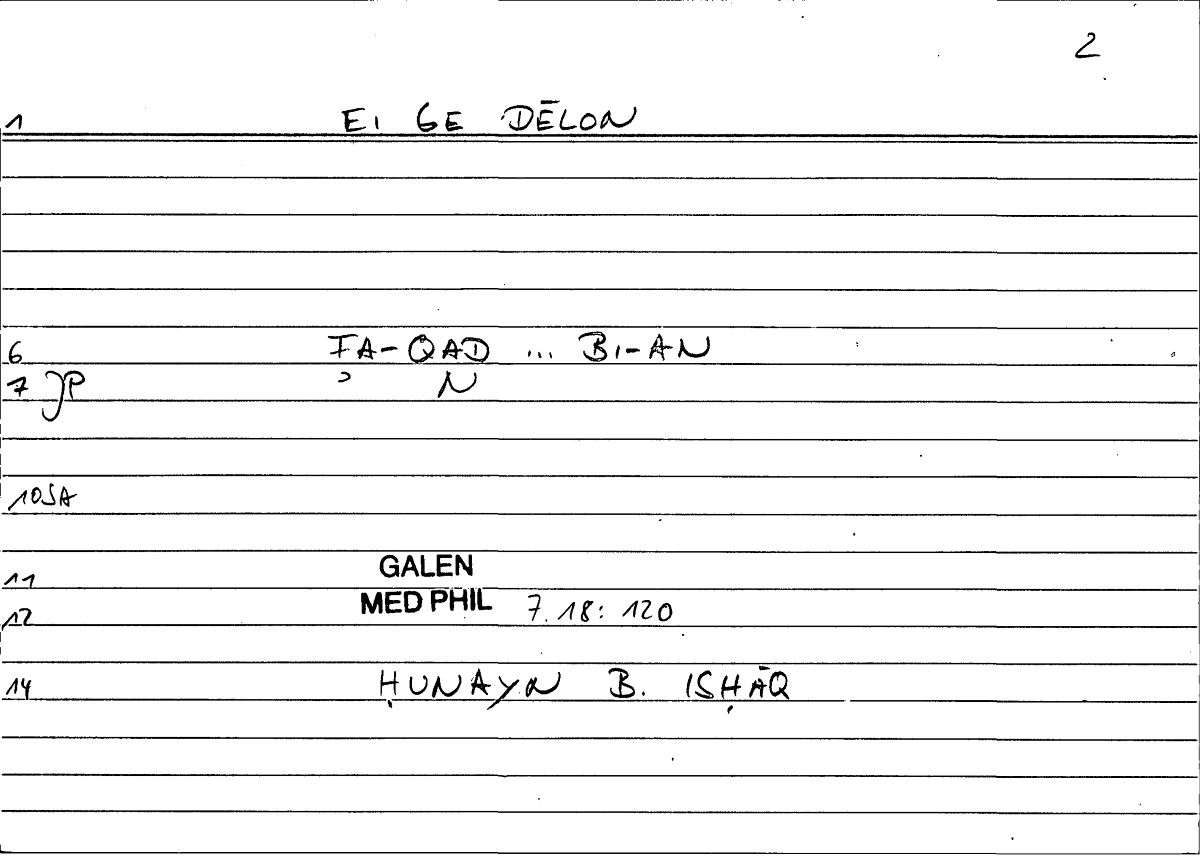 2
1 EI GE DĒLON
6 FA-QAD ... BI-AN
7 JP ʾ N
10 SA
11 GALEN
12 MED PHIL 7.18: 120
14 ḤUNAYN B. ISḤĀQ